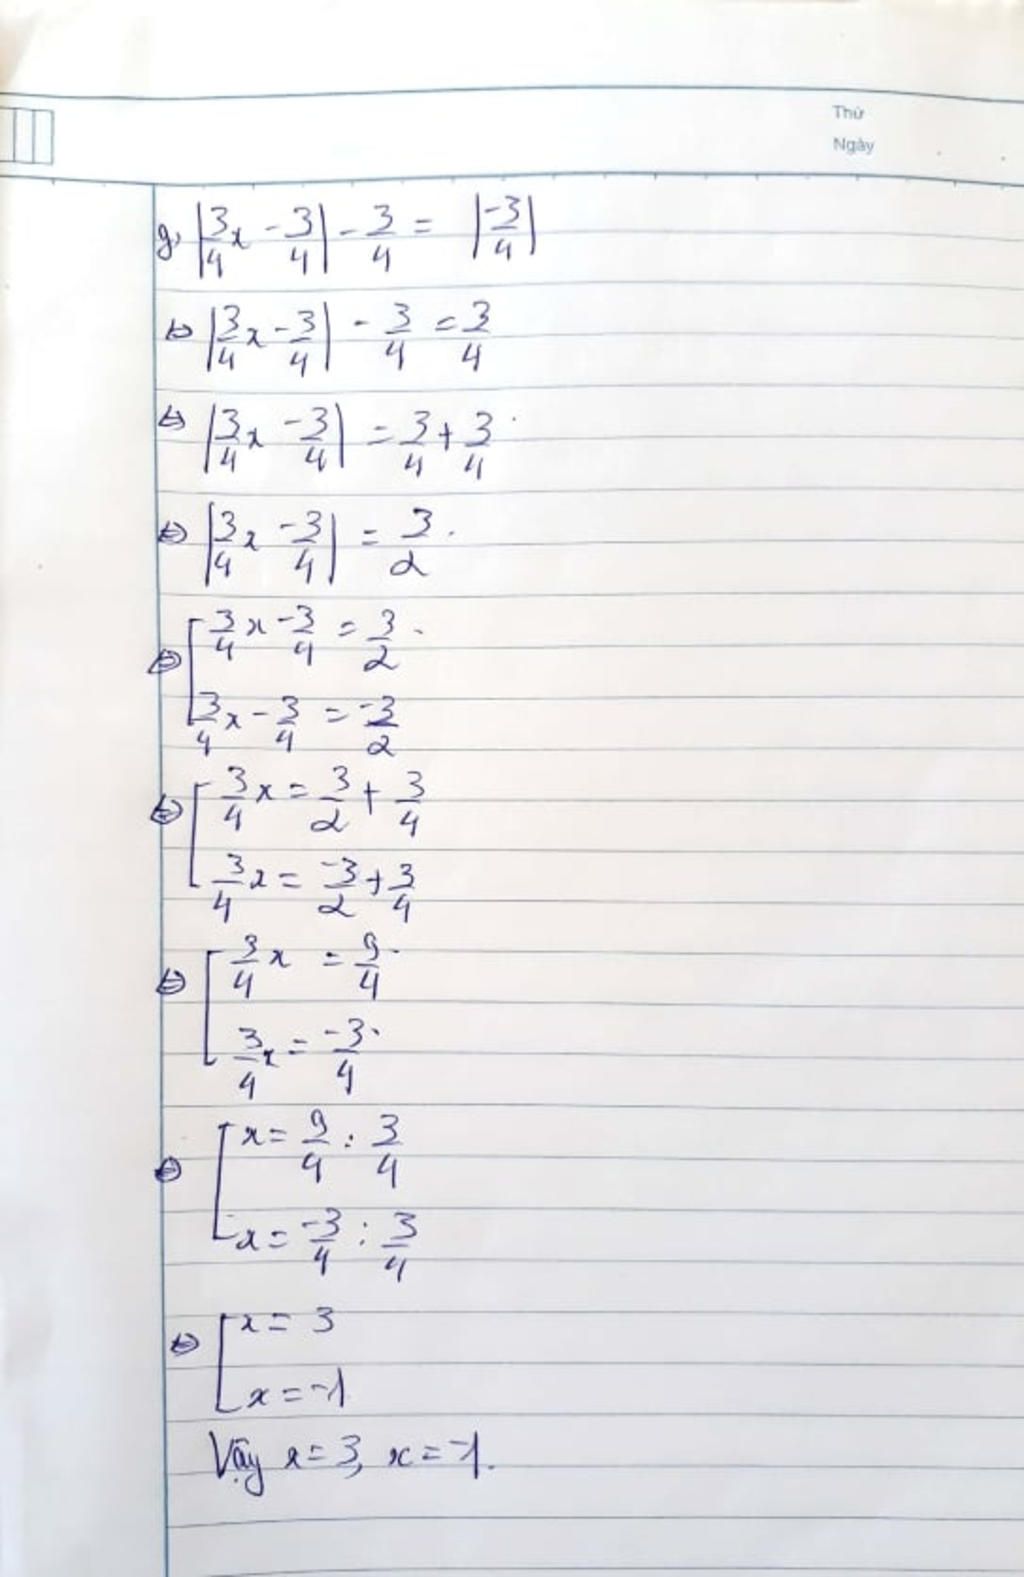 Thứ
Ngày
g, |3/4 x - 3/4| - 3/4 = |-3/4|
⇔ |3/4 x - 3/4| - 3/4 = 3/4
⇔ |3/4 x - 3/4| = 3/4 + 3/4
⇔ |3/4 x - 3/4| = 3/2
⇔ [ 3/4 x - 3/4 = 3/2
3/4 x - 3/4 = -3/2
⇔ [ 3/4 x = 3/2 + 3/4
3/4 x = -3/2 + 3/4
⇔ [ 3/4 x = 9/4
3/4 x = -3/4
⇔ [ x = 9/4 : 3/4
x = -3/4 : 3/4
⇔ [ x = 3
x = -1
Vậy x = 3, x = -1.